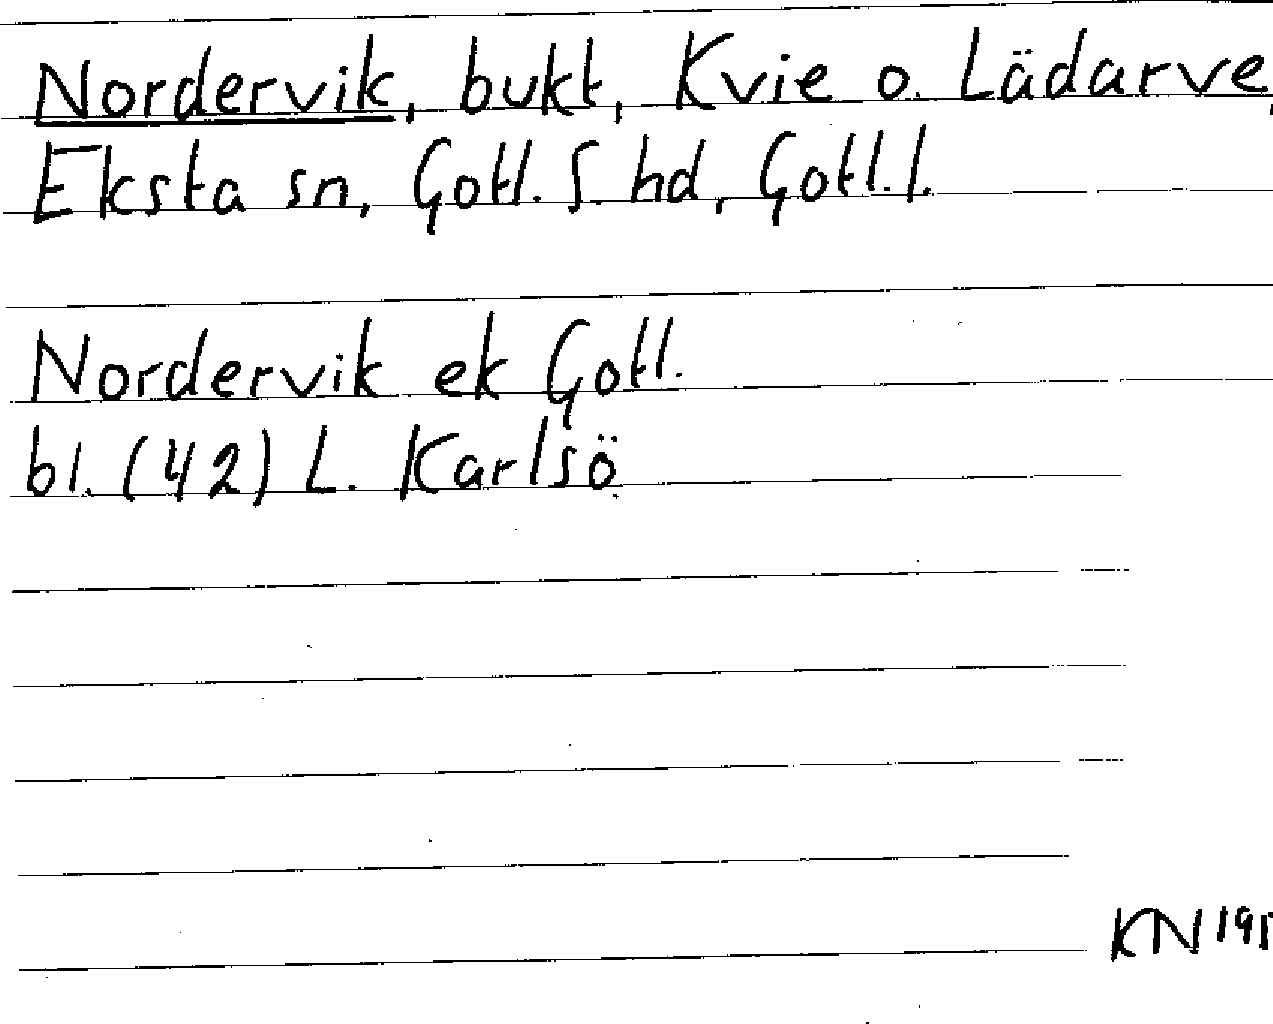 Nordervik, bukt, Kvie o. Lädarve,
Eksta sn, Gotl. S. hd, Gotl. l.
Nordervik ek Gotl.
bl. (42) L. Karlsö
KN